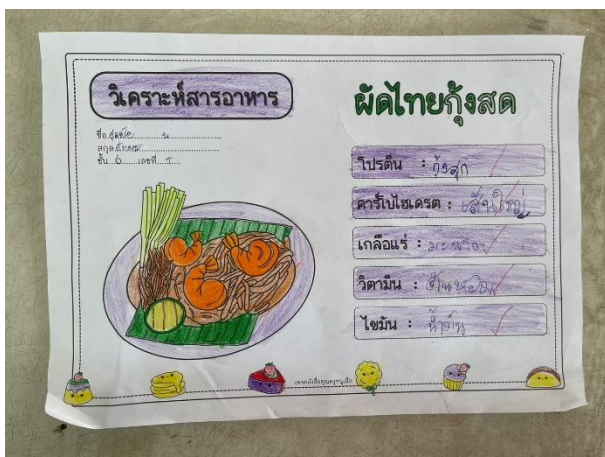 วิเคราะห์สารอาหาร
ผัดไทยกุ้งสด
ชื่อ
สกุล
ชั้น 6 เลขที่
โปรตีน : กุ้งสุก
คาร์โบไฮเดรต : เส้นใหญ่
เกลือแร่ : มะนาว
วิตามิน : ต้นหอม
ไขมัน : น้ำมัน